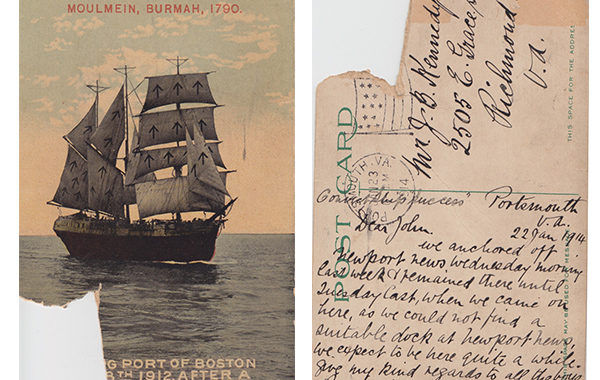 MOULMEIN, BURMAH, 1790.
G PORT OF BOSTON
8TH 1912 AFTER A
POST CARD
THIS SPACE FOR THE ADDRES
MAY BE USED FOR MESS
Mr J. B. Kennedy
2505 E. Grace
Richmond
Va.
MOUTH, VA.
23
14
Convict Ship "Success"
Portsmouth
Va.
22 Jan 1914
Dear John.
we anchored off
Newport news wednesday morning
last week & remained there until
Tuesday last, when we came on
here, as we could not find a
suitable dock at newport news.
we expect to be here quite a while.
Give my kind regards to all the boys